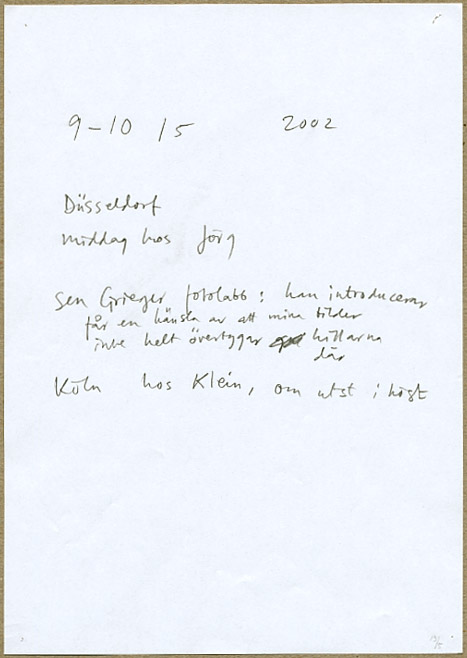 9-10 /5 2002
Düsseldorf
middag hos Jörg
sen Grieger fotolabb: han introducerar
får en känsla av att mina bilder
inte helt övertygar killarna
där
Köln hos Klein, om utst i höst